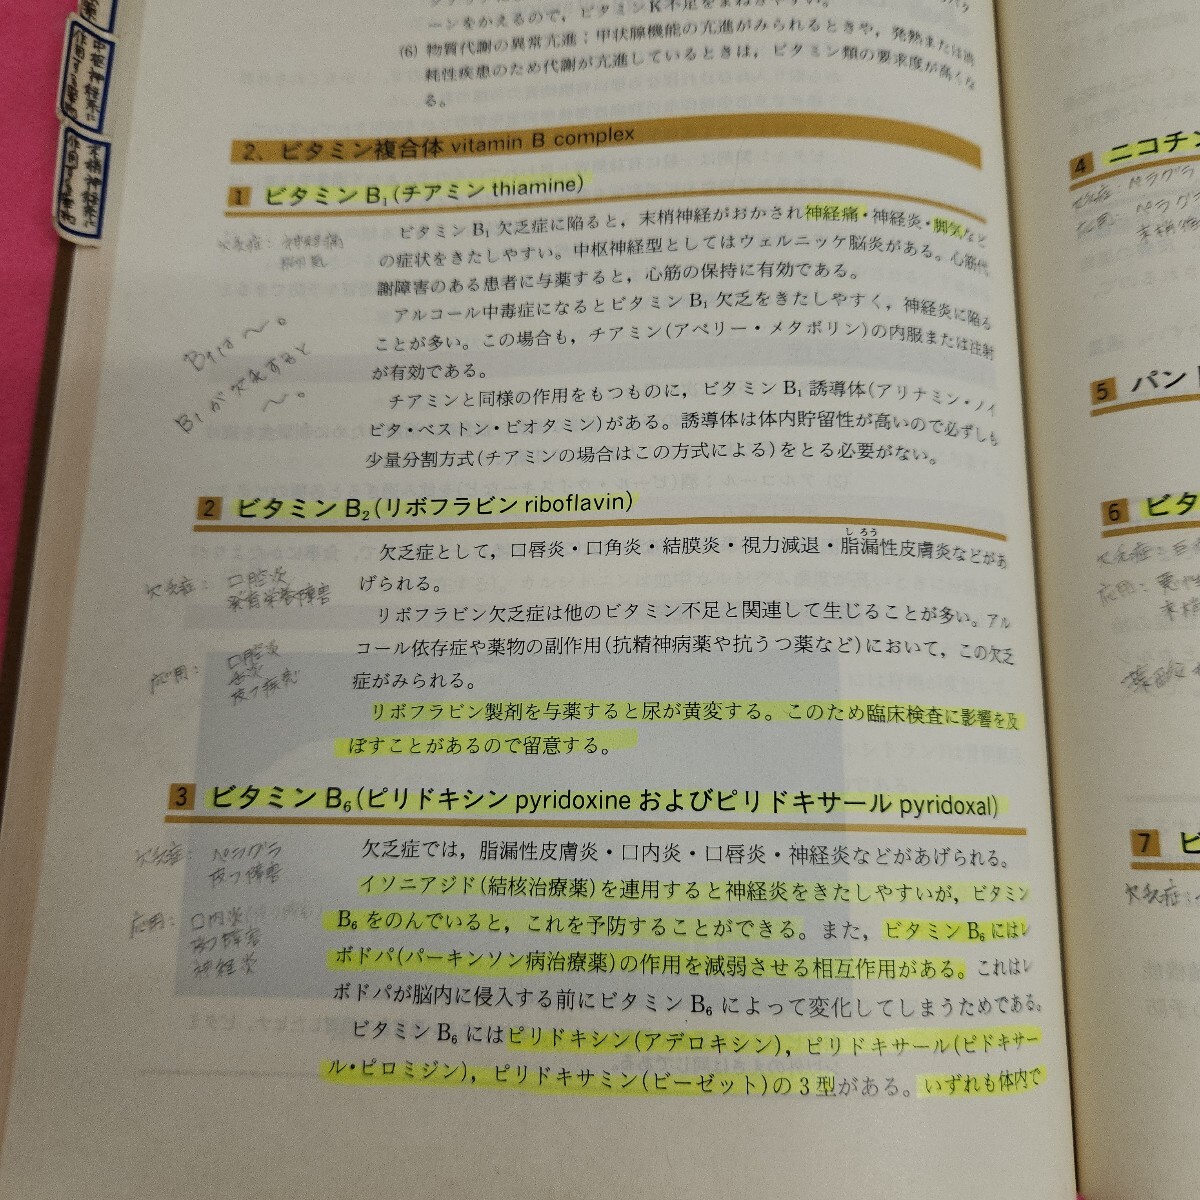 中枢神経系に
作用する薬物
末梢神経系に
作用する薬物
ーンをかえるので，ビタミンK不足をまねきやすい。
(6) 物質代謝の異常亢進：甲状腺機能の亢進がみられるときや，発熱または消
耗性疾患のため代謝が亢進しているときは，ビタミン類の要求度が高くな
る。
2. ビタミン複合体 vitamin B complex
1 ビタミンB₁(チアミン thiamine)
ビタミンB₁欠乏症に陥ると，末梢神経がおかされ神経痛・神経炎・脚気など
の症状をきたしやすい。中枢神経型としてはウェルニッケ脳炎がある。心筋代
謝障害のある患者に与薬すると，心筋の保持に有効である。
アルコール中毒症になるとビタミンB₁欠乏をきたしやすく，神経炎に陥る
ことが多い。この場合も，チアミン(アベリー・メタボリン)の内服または注射
が有効である。
チアミンと同様の作用をもつものに，ビタミンB₁誘導体(アリナミン・ノイ
ビタ・ベストン・ビオタミン)がある。誘導体は体内貯留性が高いので必ずしも
少量分割方式(チアミンの場合はこの方式による)をとる必要がない。
欠乏症：神経痛
脚気
B₁は〜。
B₁が欠乏すると
〜。
2 ビタミンB₂(リボフラビン riboflavin)
しろう
欠乏症として，口唇炎・口角炎・結膜炎・視力減退・脂漏性皮膚炎などがあ
げられる。
リボフラビン欠乏症は他のビタミン不足と関連して生じることが多い。アル
コール依存症や薬物の副作用(抗精神病薬や抗うつ薬など)において，この欠乏
症がみられる。
リボフラビン製剤を与薬すると尿が黄変する。このため臨床検査に影響を及
ぼすことがあるので留意する。
欠乏症：口腔炎
発育栄養障害
応用：口腔炎
舌炎
皮フ疾患
3 ビタミンB₆(ピリドキシン pyridoxine およびピリドキサール pyridoxal)
欠乏症では，脂漏性皮膚炎・口内炎・口唇炎・神経炎などがあげられる。
イソニアジド(結核治療薬)を連用すると神経炎をきたしやすいが，ビタミン
B₆をのんでいると，これを予防することができる。また，ビタミンB₆にはレ
ボドパ(パーキンソン病治療薬)の作用を減弱させる相互作用がある。これはレ
ボドパが脳内に侵入する前にビタミンB₆によって変化してしまうためである。
ビタミンB₆にはピリドキシン(アデロキシン)，ピリドキサール(ピドキサー
ル・ピロミジン)，ピリドキサミン(ビーゼット)の3型がある。いずれも体内で
欠乏症：ペラグラ
皮フ障害
応用：口内炎
皮フ障害
神経炎
4 ニコチン
欠乏症：ペラグラ
応用：ペラグラ
5 パント
6 ビタ
欠乏症：
応用：悪性
7 ビ
欠乏症：